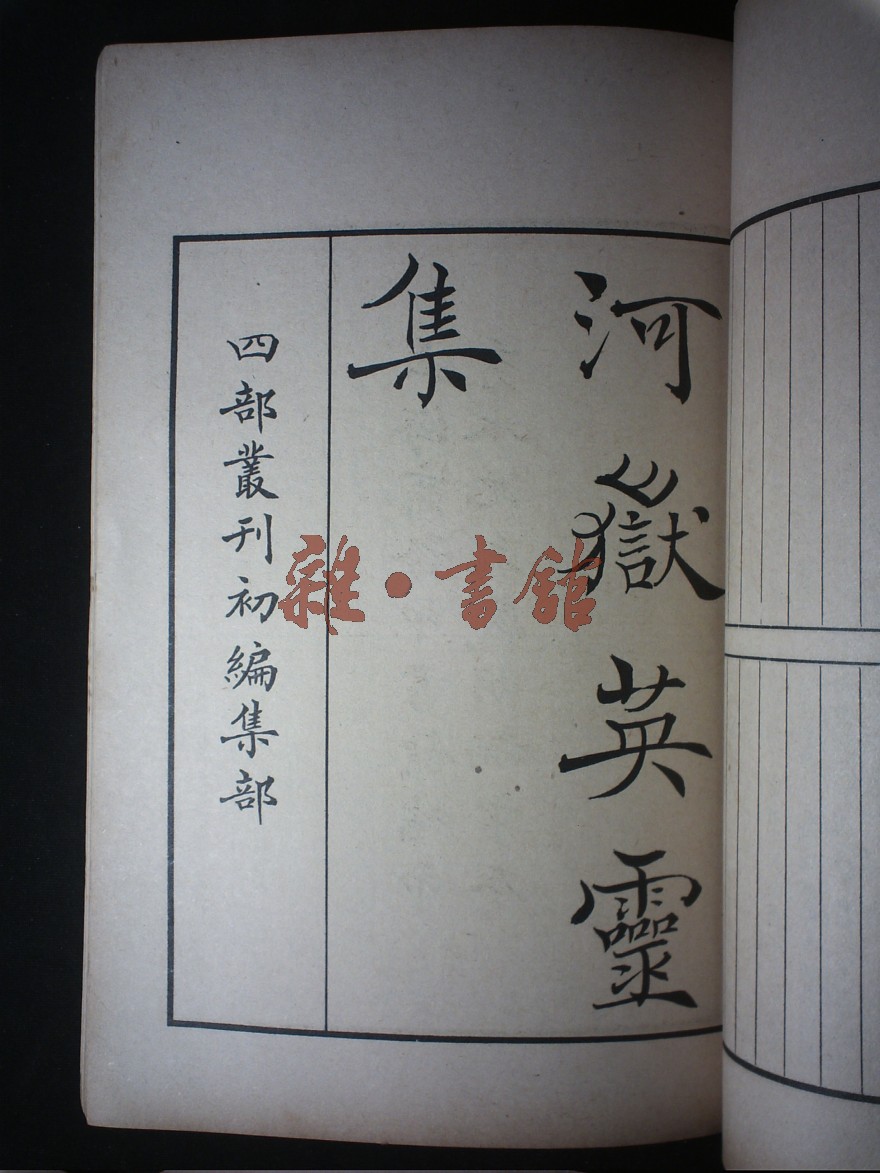 河嶽英靈
集
四部叢刊初編集部
雜·書館